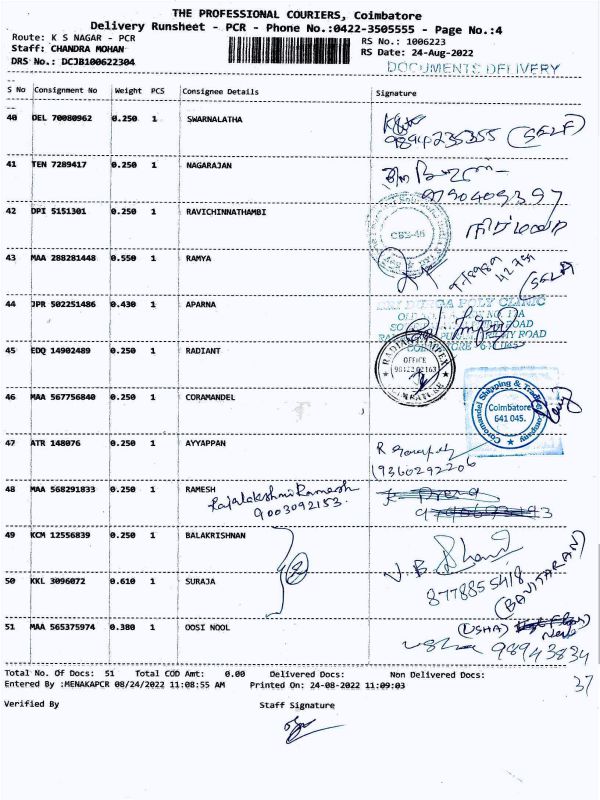 THE PROFESSIONAL COURIERS, Coimbatore
Delivery Runsheet - PCR - Phone No.:0422-3505555 - Page No.:4
Route: K S NAGAR - PCR
RS No.: 1006223
Staff: CHANDRA MOHAN
RS Date: 24-Aug-2022
DRS No.: DCJB100622304
DOCUMENTS DELIVERY
S No Consignment No Weight PCS Consignee Details Signature
40 DEL 70080962 0.250 1 SWARNALATHA
9894235355 (SELF)
41 TEN 7289417 0.250 1 NAGARAJAN
9790409397
42 DPI 5151301 0.250 1 RAVICHINNATHAMBI
CBE-46
43 MAA 288281448 0.550 1 RAMYA
(SELF)
44 JPR 502251486 0.430 1 APARNA
POLY CLINIC
45 EDQ 14902489 0.250 1 RADIANT
RADIANT IMPEX
OFFICE
46 MAA 567756840 0.250 1 CORAMANDEL
Coromandel Shipping & Trading Company
Coimbatore
641 045.
47 ATR 148076 0.250 1 AYYAPPAN
9360292206
48 MAA 568291833 0.250 1 RAMESH
Rajalakshmi Ramesh
9003092153
49 KCM 12556839 0.250 1 BALAKRISHNAN
V.B.
8778855418
50 KKL 3096072 0.610 1 SURAJA
51 MAA 565375974 0.380 1 OOSI NOOL
(USHA)
usha 98943834
Total No. Of Docs: 51 Total COD Amt: 0.00 Delivered Docs: Non Delivered Docs:
37
Entered By :MENAKAPCR 08/24/2022 11:08:55 AM Printed On: 24-08-2022 11:09:03
Verified By Staff Signature